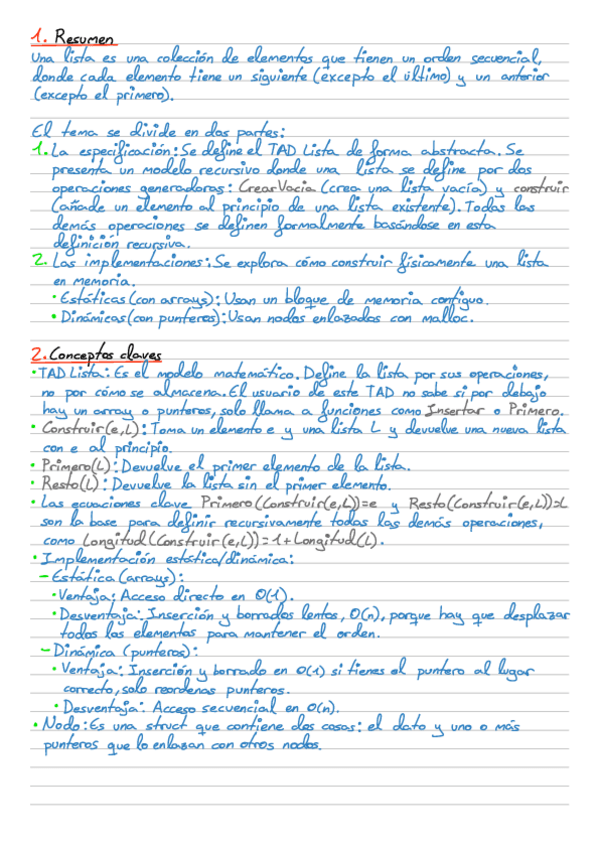 1. Resumen
Una lista es una colección de elementos que tienen un orden secuencial,
donde cada elemento tiene un siguiente (excepto el último) y un anterior
(excepto el primero).
El tema se divide en dos partes:
1. La especificación: Se define el TAD Lista de forma abstracta. Se
presenta un modelo recursivo donde una lista se define por dos
operaciones generadoras: CrearVacia (crea una lista vacía) y construir
(añade un elemento al principio de una lista existente). Todas las
demás operaciones se definen formalmente basándose en esta
definición recursiva.
2. Las implementaciones: Se explora cómo construir físicamente una lista
en memoria.
· Estáticas (con arrays): Usan un bloque de memoria contiguo.
· Dinámicas (con punteros): Usan nodos enlazados con malloc.
2. Conceptos claves
· TAD Lista: Es el modelo matemático. Define la lista por sus operaciones,
no por cómo se almacena. El usuario de este TAD no sabe si por debajo
hay un array o punteros, solo llama a funciones como Insertar o Primero.
· Construir(e,L): Toma un elemento e y una lista L y devuelve una nueva lista
con e al principio.
· Primero(L): Devuelve el primer elemento de la lista.
· Resto(L): Devuelve la lista sin el primer elemento.
· Las ecuaciones clave Primero(Construir(e,L))=e y Resto(Construir(e,L))=L
son la base para definir recursivamente todas las demás operaciones,
como Longitud(Construir(e,L))=1+Longitud(L).
· Implementación estática/dinámica:
- Estática (arrays):
· Ventaja: Acceso directo en O(1).
· Desventaja: Inserción y borrados lentos, O(n), porque hay que desplazar
todos los elementos para mantener el orden.
- Dinámica (punteros):
· Ventaja: Inserción y borrado en O(1) si tienes el puntero al lugar
correcto, solo reordenas punteros.
· Desventaja: Acceso secuencial en O(n).
· Nodo: Es una struct que contiene dos cosas: el dato y uno o más
punteros que lo enlazan con otros nodos.